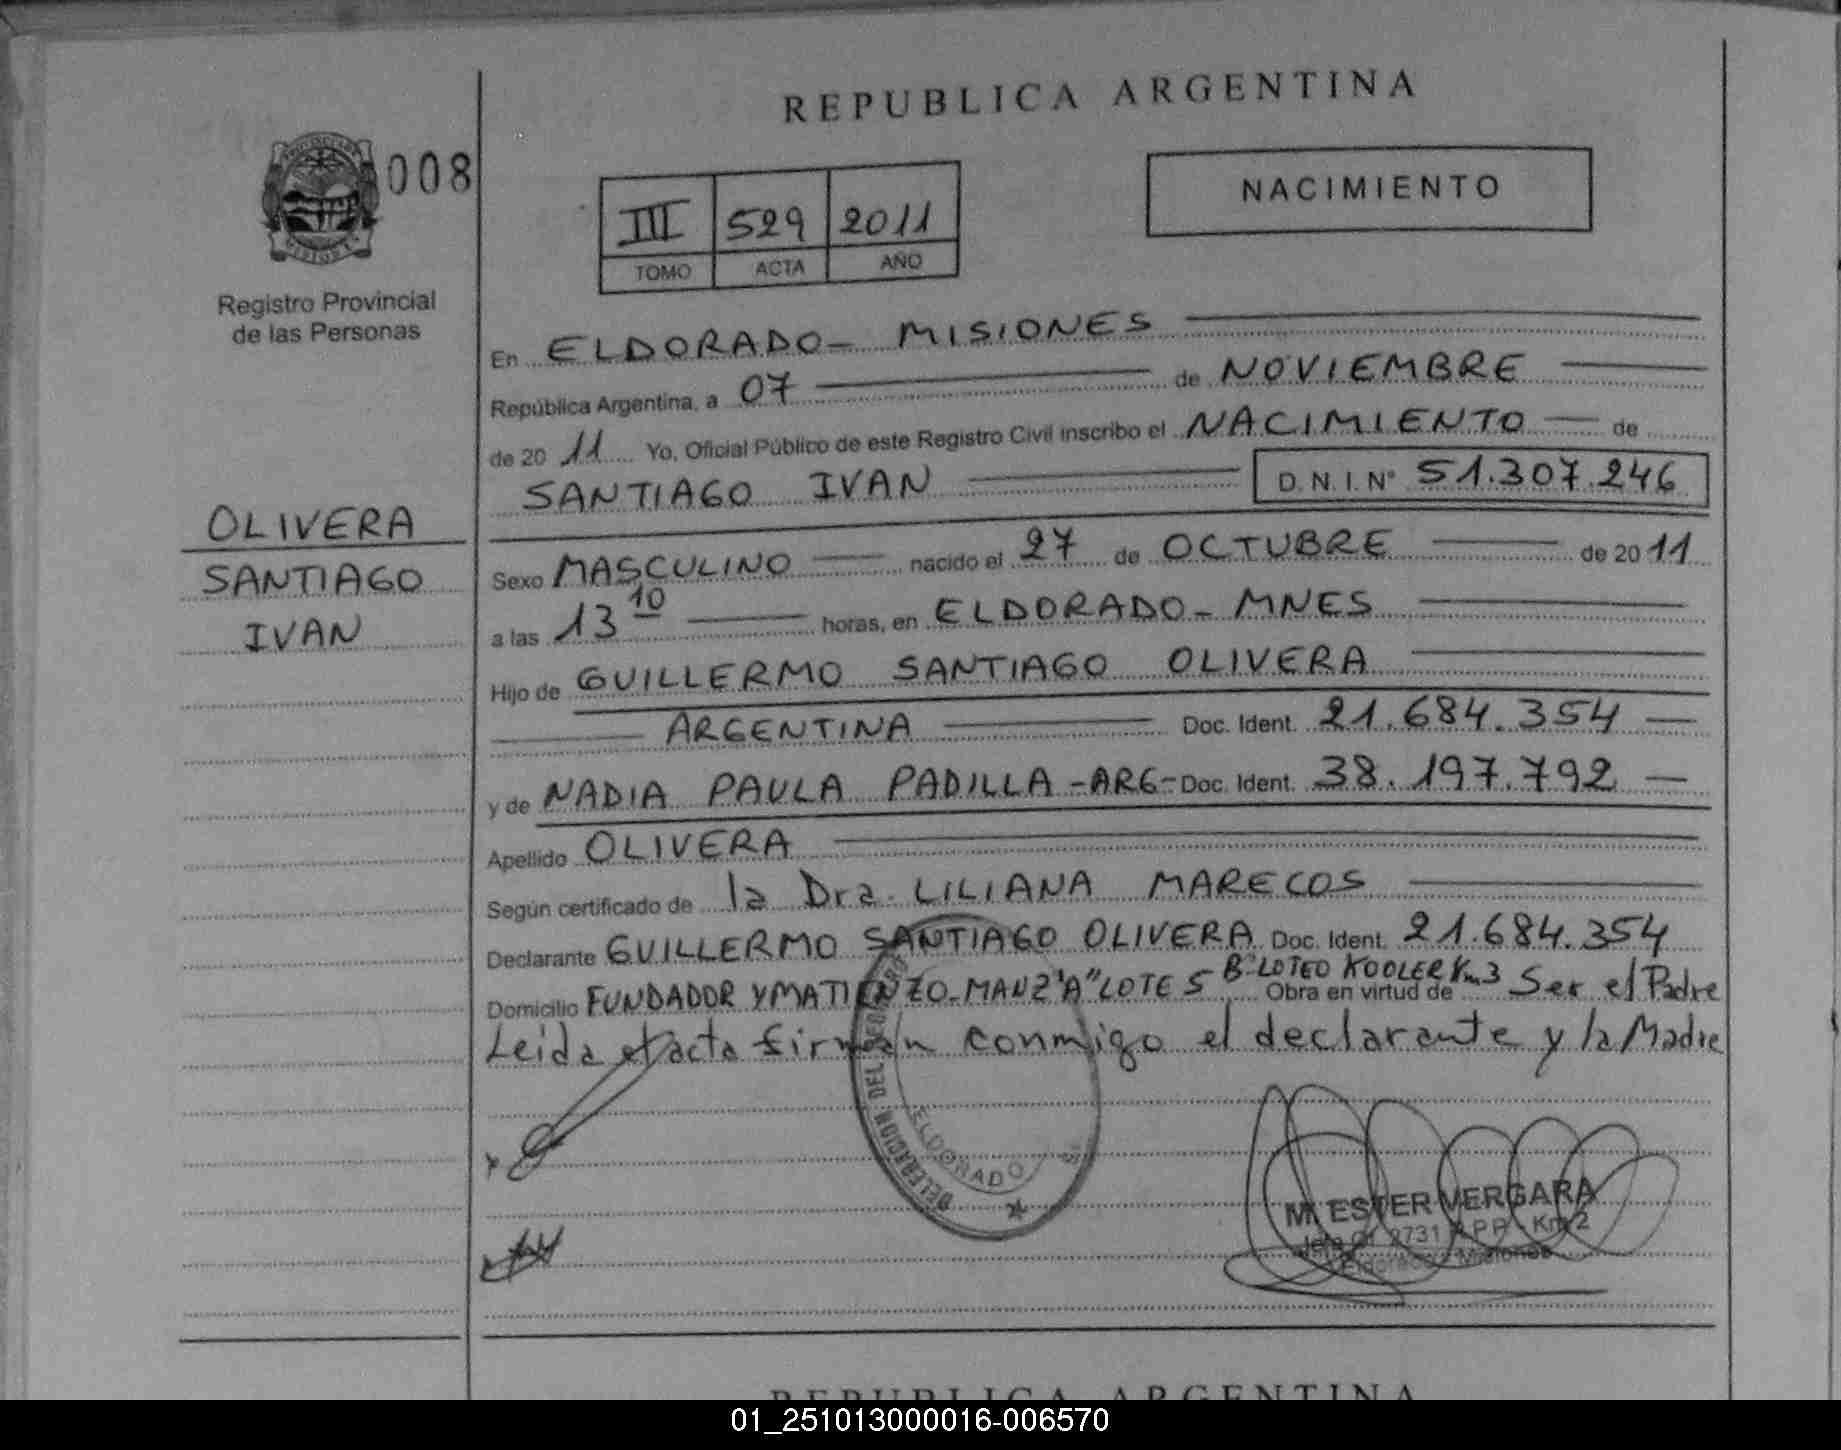 REPUBLICA ARGENTINA
008
NACIMIENTO
III 529 2011
TOMO ACTA AÑO
Registro Provincial
de las Personas
En ELDORADO - MISIONES
República Argentina, a 07 de NOVIEMBRE
de 20 11 Yo, Oficial Público de este Registro Civil inscribo el NACIMIENTO de
SANTIAGO IVAN D.N.I. N° 51.307.246
OLIVERA
SANTIAGO
IVAN
Sexo MASCULINO nacido el 27 de OCTUBRE de 20 11
a las 13 10 horas, en ELDORADO - MNES
Hijo de GUILLERMO SANTIAGO OLIVERA
ARGENTINA Doc. Ident. 21.684.354
y de NADIA PAULA PADILLA - ARG - Doc. Ident. 38.197.792
Apellido OLIVERA
Según certificado de la Dra. LILIANA MARECOS
Declarante GUILLERMO SANTIAGO OLIVERA Doc. Ident. 21.684.354
Domicilio FUNDADOR Y MATIENZO - MANZ "A" LOTE 5 B° LOTEO KOOLER Km 3 Obra en virtud de Ser el Padre
Leida el acta firman conmigo el declarante y la Madre
DELEGACION DEL
ELDORADO
M. ESTER VERGARA
2731 R.P.P. - Km 2
Eldorado - Misiones
REPUBLICA ARGENTINA
01_251013000016-006570